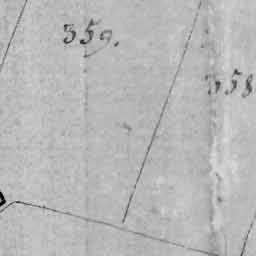 359.
358